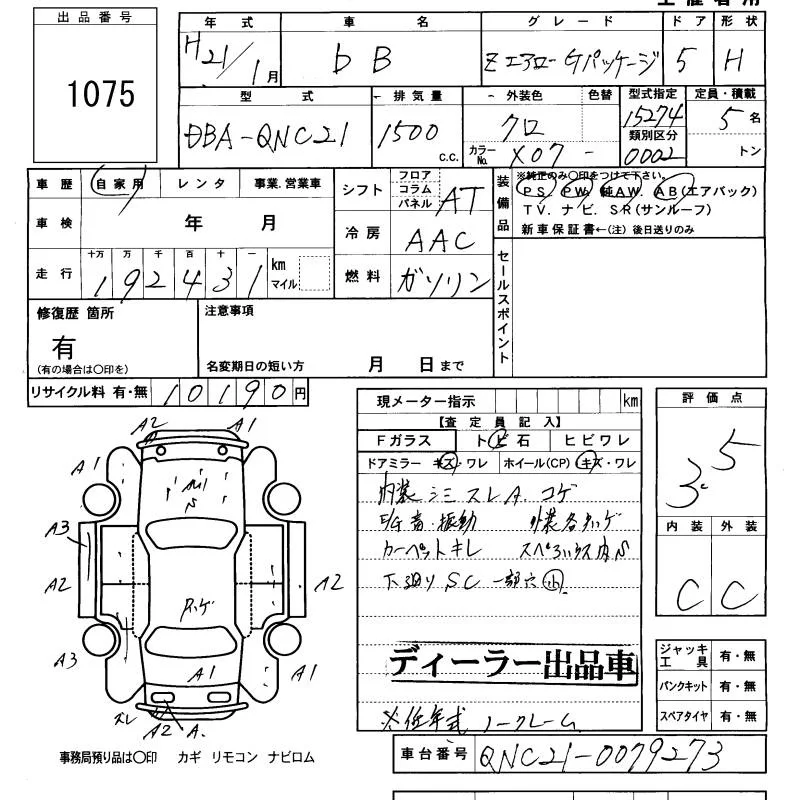 出品番号
1075
年式 車名 グレード ドア 形状
H21/1月 bB Zエアロ-Gパッケージ 5 H
型式 排気量 外装色 色替 型式指定 定員・積載
DBA-QNC21 1500 c.c. クロ 15274 5名
カラーNo. X07 - 類別区分 0002 トン
車歴 自家用 レンタ 事業.営業車
シフト フロア コラム パネル AT
装備品 ※純正のみ〇印をつけて下さい。
PS. PW. 純AW. AB(エアバック)
TV. ナビ. SR(サンルーフ)
新車保証書←(注) 後日送りのみ
車検 年 月
冷房 AAC
走行 十万 万 千 百 十 一 km マイル
192431
燃料 ガソリン
セールスポイント
修復歴 箇所
有
(有の場合は〇印を)
注意事項
名変期日の短い方 月 日まで
リサイクル料 有・無 10190円
現メーター指示 km
【査定員記入】
Fガラス トビ石 ヒビワレ
ドアミラー キズ・ワレ ホイール(CP) キズ・ワレ
内装 シミ スレ A. コゲ
E/G音・振動 外装各キズ
カーペットキレ
下廻り SC 一部穴 小
ディーラー出品車
※低年式 ノークレーム
車台番号 QNC21-0079273
評価点
3.5
内装 外装
C C
ジャッキ工具 有・無
パンクキット 有・無
スペアタイヤ 有・無
A2 A1
A1 A1
A3
A2 A2
A3 A1 A1
ズレ A2 A.
事務局預り品は〇印 カギ リモコン ナビロム